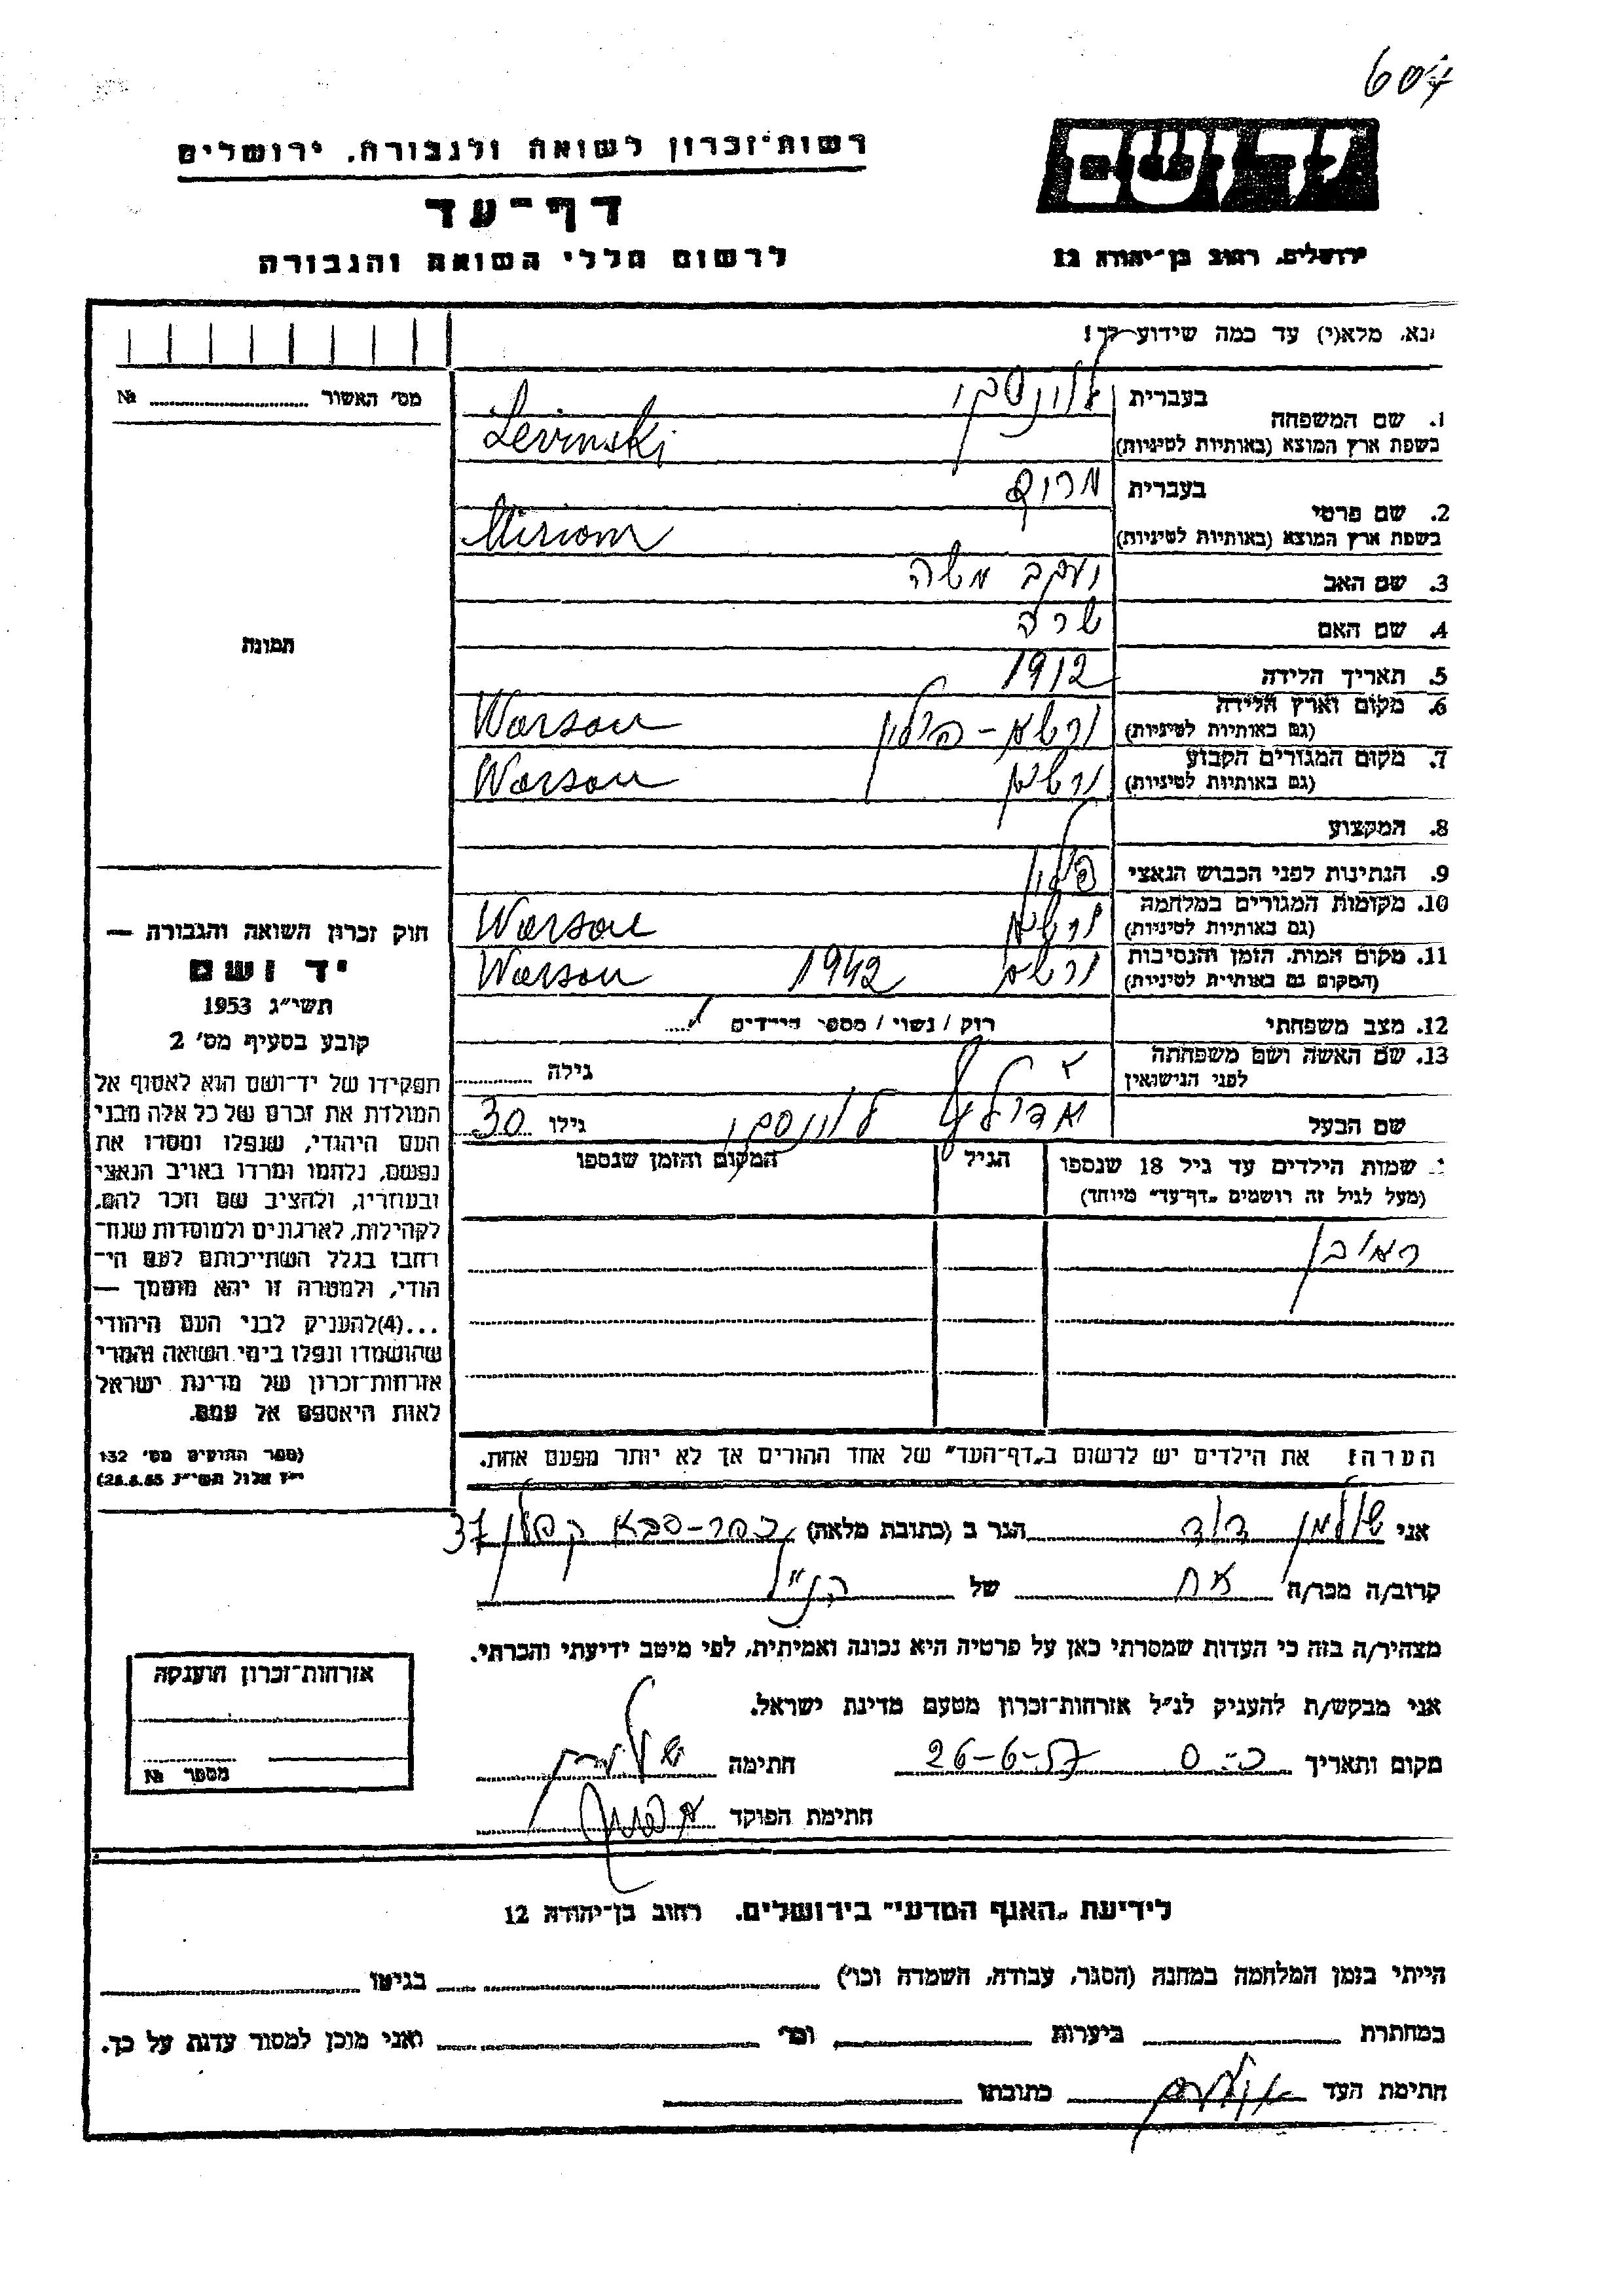 רשות־זכרון לשואה ולגבורה, ירושלים
דף־עד
לרשום חללי השואה והגבורה
יד ושם
ירושלים, רחוב בן־יהודה 12
נא, מלא(י) עד כמה שידוע לך!
מס׳ האשור № 
1. שם המשפחה בעברית לוינסקי
בשפת ארץ המוצא (באותיות לטיניות) Levinski
2. שם פרטי בעברית מרים
בשפת ארץ המוצא (באותיות לטיניות) Miriam
3. שם האב יעקב משה
4. שם האם שרה
5. תאריך הלידה 1912
6. מקום וארץ הלידה ורשא - פולין Warsau
(גם באותיות לטיניות)
7. מקום המגורים הקבוע ורשא Warsau
(גם באותיות לטיניות)
8. המקצוע
9. הנתינות לפני הכבוש הנאצי פולין
10. מקומות המגורים במלחמה ורשא Warsau
(גם באותיות לטיניות)
11. מקום המות, הזמן והנסיבות ורשא 1942 Warsau
(המקום גם באותיות לטיניות)
12. מצב משפחתי רוק / נשוי / מספר הילדים
13. שם האשה ושם משפחתה
לפני הנישואין גילה
שם הבעל אדולף לוינסקי גילו 30
שמות הילדים עד גיל 18 שנספו הגיל המקום והזמן שנספו
(מעל לגיל זה רושמים „דף־עד״ מיוחד)
ראובן
הערה: את הילדים יש לרשום ב„דף־העד״ של אחד ההורים אך לא יותר מפעם אחת.
תמונה
חוק זכרון השואה והגבורה —
יד ושם
תשי״ג 1953
קובע בסעיף מס׳ 2
תפקידו של יד־ושם הוא לאסוף אל
המולדת את זכרם של כל אלה מבני
העם היהודי, שנפלו ומסרו את
נפשם, נלחמו ומרדו באויב הנאצי
ובעוזריו, ולהציב שם וזכר להם,
לקהילות, לארגונים ולמוסדות שנח־
רחבו בגלל השתייכותם לעם הי־
הודי, ולמטרה זו יהא מוסמך —
...(4)להעניק לבני העם היהודי
שהושמדו ונפלו בימי השואה והמרי
אזרחות־זכרון של מדינת ישראל
לאות היאספם אל עמם.
(ספר החוקים מס׳ 132
אני שולמן דוד הגר ב (כתובת מלאה) כפר-סבא קפלן 37
קרוב/ה מכר/ה אח של הנ״ל
מצהיר/ה בזה כי העדות שמסרתי כאן על פרטיה היא נכונה ואמיתית, לפי מיטב ידיעתי והכרתי.
אני מבקש/ת להעניק לנ״ל אזרחות־זכרון מטעם מדינת ישראל.
מקום ותאריך כ-ס 26-6-57 חתימה שולמן
חתימת הפוקד
אזרחות־זכרון הוענקה
מספר №
לידיעת „האגף המדעי״ בירושלים, רחוב בן־יהודה 12
הייתי בזמן המלחמה במחנה (הסגר, עבודה, השמדה וכו׳) בגיטו
במחתרת ביערות וכו׳ ואני מוכן למסור עדות על כך.
חתימת העד כתובתו